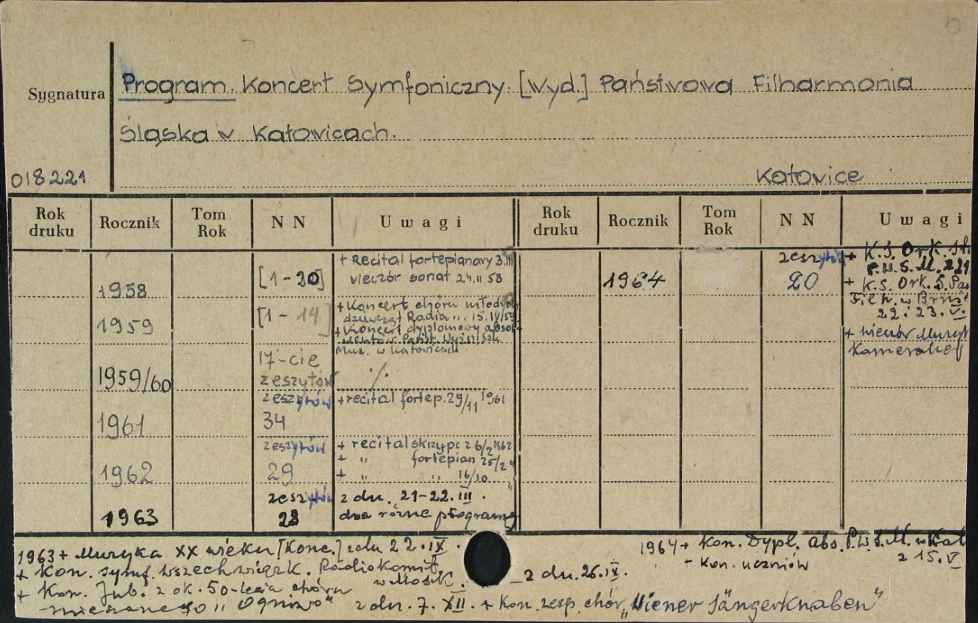 Sygnatura
Program. Koncert Symfoniczny. [Wyd.] Państwowa Filharmonia
Śląska w Katowicach.
018221
Katowice
Rok druku Rocznik Tom Rok N N Uwagi Rok druku Rocznik Tom Rok N N Uwagi
1958 [1-20] + Recital fortepianowy 3.
wieczór sonat 24.II 58
1959 [1-14] + Koncert chóru
dziewcząt Radia 15.IV
+ Koncert dyplomowy
Muz. w Katowicach
1959/60 17-cie zeszytów ./.
1961 zeszytów 34 + recital fortep. 29/11 1961
1962 zeszytów 29 + recital skrzypc z 6/2 1962
+ " fortepian 25/2
+ " " 16/10
1963 zeszytów 28 z dn. 21-22.III.
dwa różne programy
1964 zeszytów 20 + K.S. Ork.
P.W.S.M.
+ K.S. Ork.
22.23.V.
+ wieczór Muzyki
Kameralnej
1963 + Muzyka XX wieku [Konc.] z dn 22.IX.
+ Kon. symf. wszechzwiązk. Radiokomit.
w Mosk. z dn. 26.IX.
+ Kon. Jub. z ok. 50-lecia chóru
mieszanego "Ogniwo" z dn. 7. XII. + Kon. zesp. chór. "Wiener Sängerknaben"
1964 + Kon. Dypl. abs. P.W.S.M. w Kat.
z 15.V
- Kon. uczniów